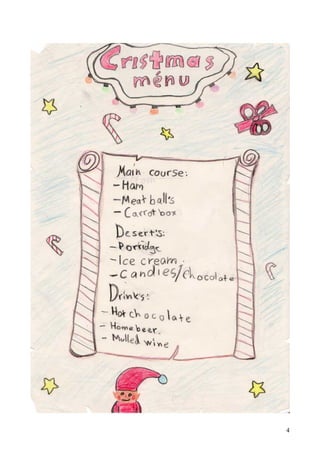 Cristmas
ménu
Main course:
-Ham
-Meatball's
-Carrotbox
Desert's:
-Porridge
-Ice cream.
-Candies/chocolate
Drink's:
-Hot chocolate
-Homebeer.
-Mulled wine
4